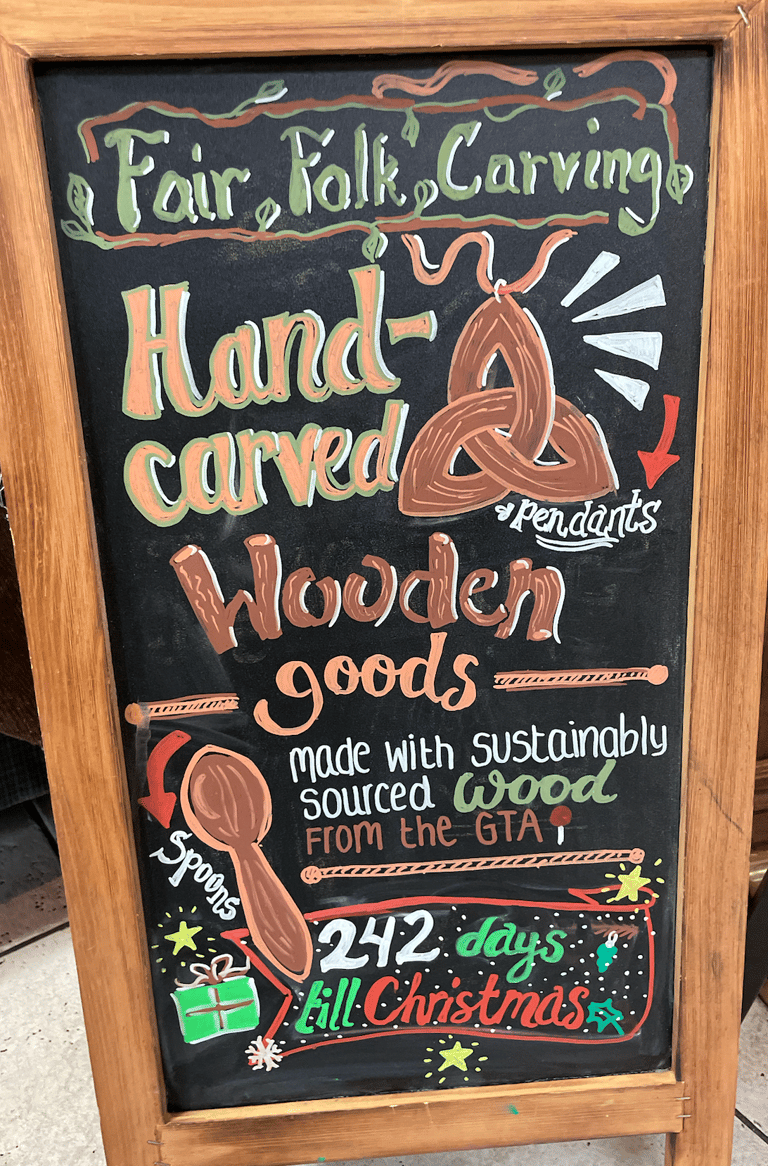 Fair Folk Carving
Hand-
carved
pendants
Wooden
goods
made with sustainably
sourced wood
from the GTA
Spoons
242 days
till Christmas